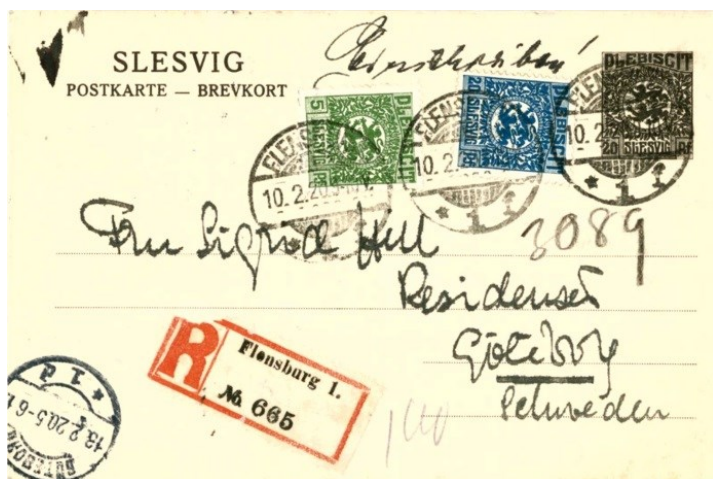 SLESVIG
POSTKARTE — BREVKORT
Einschreiben!
PLEBISCIT
20 SLESVIG PF
PLEBISCIT
5 SLESVIG PF
PLEBISCIT
20 SLESVIG PF
FLENSBURG
10.2.20.
* 1 f
10.2.20.
* 1 f
10.2.20.
* 1 f
3089
Fru Sigrid Hill
Residenset
Göteborg
Schweden
R
Flensburg 1.
№ 665
GÖTEBORG
13.2.20.5-6
* 1 d